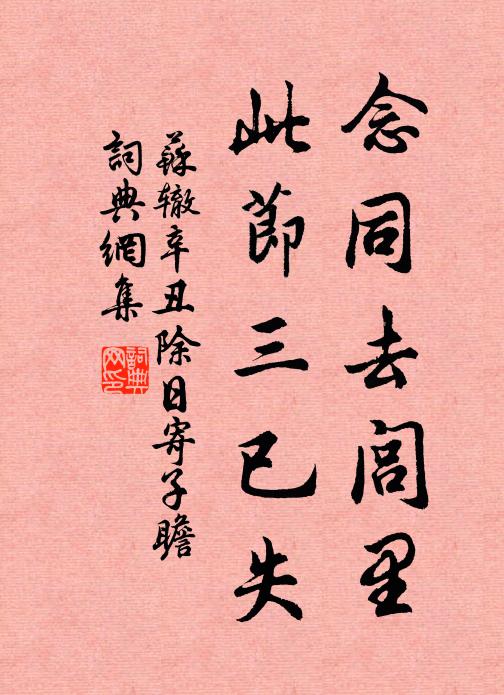 念同去閭里
此節三已失
蘇轍辛丑除日寄子瞻
詞典網集
詞典网印